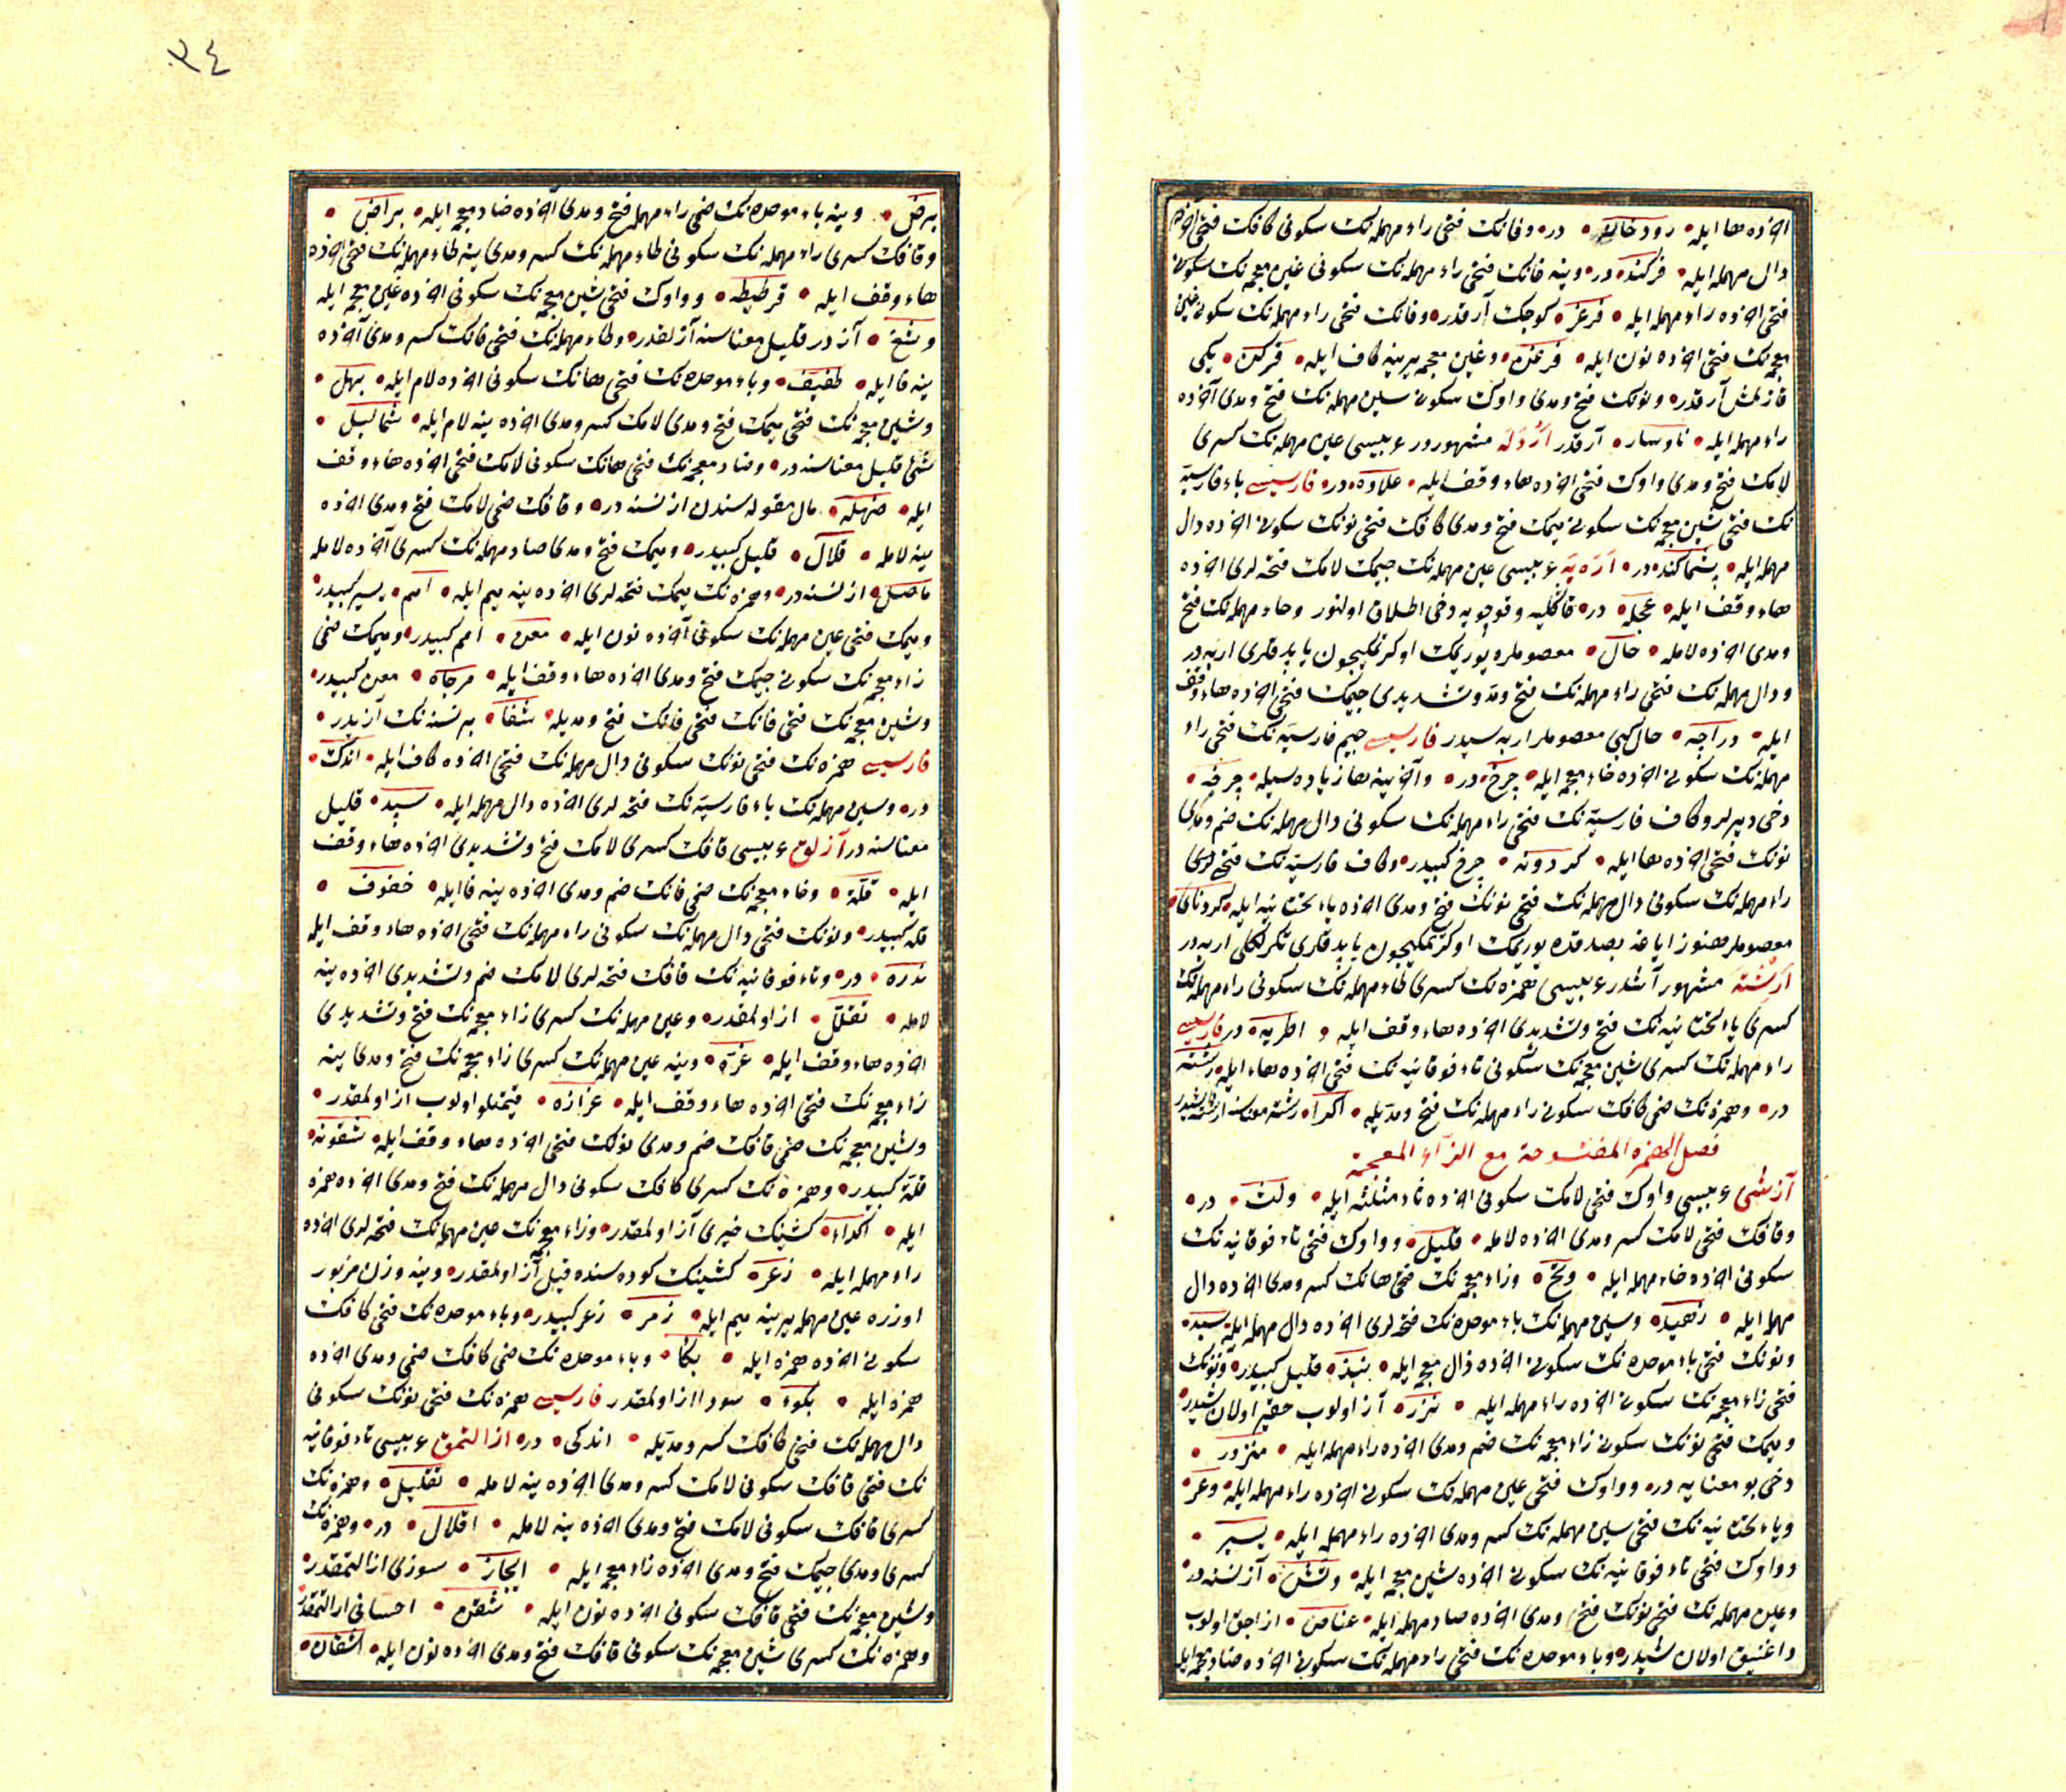 اخرده ها ایله • رودخانه • در • وفانك فتحی راء مهمله نك سكونی كافك فتحی اخرده
دال مهمله ایله • فركند • در • وینه فانك فتحی راء مهمله نك سكونی غین معجمه نك سكونی
فتحی اخرده راء مهمله ایله • فرغر • كوچك آرقدر • وفانك فتحی راء مهمله نك سكونی غین
معجمه نك فتحی اخرده نون ایله • فرغن • وغین معجمه یرینه كاف ایله • فركن • یكی
قازلمش آرقدر • ونونك فتح ومدی واوك سكونی سین مهمله نك فتح ومدی آخرده
راء مهمله ایله • ناوسار • آرقدر اَرْدَلَه مشهوردر عربیسی عین مهمله نك كسری
لامك فتح ومدی واوك فتحی اخرده هاء وقف ایله • علاوه • در • فارسیسی باء فارسیه
نك فتحی شین معجمه نك سكونی میمك فتح ومدی كافك فتحی نونك سكونی اخرده دال
مهمله ایله • پشماكند • در • اَرَه بَه عربیسی عین مهمله نك جیمك لامك فتحه لری اخرده
هاء وقف ایله • عجله • در • قاڭلیه وقوچویه دخی اطلاق اولنور وحاء مهمله نك فتح
ومدی اخرده لامله • حال • معصوملره یوریمك اوكرنمكیچون یاپدقلری اربه در
ودال مهمله نك فتحی راء مهمله نك فتح ومد وتشدیدی جیمك فتحی اخرده هاء وقف
ایله • دراجه • حال كبی معصوملر اربه سیدر فارسیسی جیم فارسیه نك فتحی راء
مهمله نك سكونی اخرده خاء معجمه ایله • چرخ • در • واخرینه ها زیاده سیله • چرخه •
دخی دیرلر وكاف فارسیه نك فتحی راء مهمله نك سكونی دال مهمله نك ضم ومدی
نونك فتحی اخرده ها ایله • كردونه • چرخ كبیدر • وكاف فارسیه نك فتحه لری
راء مهمله نك سكونی دال مهمله نك فتحی نونك فتح ومدی اخرده یاء تحتانیه ایله • كردنای •
معصوملر هنوز ایاغه بصدقده یوریمك اوكرنمكیچون یاپدقلری تكرلكلی اربه در
اَرِشْتَه مشهور آشدر عربیسی همزه نك كسری طاء مهمله نك سكونی راء مهمله نك
كسری یاء تحتانیه نك فتح وتشدیدی اخرده هاء وقف ایله • اطریه • در فارسیسی
راء مهمله نك كسری شین معجمه نك سكونی تاء فوقانیه نك فتحی اخرده هاء ایله • رشته
در • وهمزه نك ضمی كافك سكونی راء مهمله نك فتح ومدیله • اكرا • رشته معناسنه
فصل الهمزة المفتوحة مع الزاء المعجمة
آز شی عربیسی واوك فتحی لامك سكونی اخرده ثاء مثلثه ایله • ولث • در •
وقافك فتحی لامك كسر ومدی اخرده لامله • قلیل • وواوك فتحی تاء فوقانیه نك
سكونی اخرده حاء مهمله ایله • وتح • وزاء معجمه نك فتحی هانك كسر ومدی اخرده دال
مهمله ایله • زهید • وسین مهمله نك باء موحده نك فتحه لری اخرده دال مهمله ایله • سبد •
ونونك فتحی باء موحده نك سكونی اخرده ذال معجمه ایله • نبذ • قلیل كبیدر • ونونك
فتحی زاء معجمه نك سكونی اخرده راء مهمله ایله • نزر • آز اولوب حقیر اولان شیدر •
ومیمك فتحی نونك سكونی زاء معجمه نك ضم ومدی اخرده راء مهمله ایله • منزور •
دخی بو معنایه در • وواوك فتحی عین مهمله نك سكونی اخرده راء مهمله ایله • وعر •
ویاء تحتانیه نك فتحی سین مهمله نك كسر ومدی اخرده راء مهمله ایله • یسیر •
وواوك فتحی تاء فوقانیه نك سكونی اخرده شین معجمه ایله • وتش • آز نسنه در •
وعین مهمله نك فتحی نونك فتح ومدی اخرده صاد مهمله ایله • عناص • ازاجق اولوب
داغنیق اولان شیدر • وباء موحده نك فتحی راء مهمله نك سكونی اخرده ضاد معجمه ایله
٣٤
برض • وینه باء موحده نك ضمی راء مهمله فتح ومدی آخرده ضاد معجمه ایله • براض •
وقافك كسری راء مهمله نك سكونی طاء مهمله نك كسر ومدی ینه طاء مهمله نك فتحی اخرده
هاء وقف ایله • قرطیطه • وواوك فتحی شین معجمه نك سكونی اخرده غین معجمه ایله
وشغ • آز در قلیل معناسنه آز لقدر • وطاء مهمله نك فتحی فانك كسر ومدی آخرده
ینه فا ایله • طفیف • وباء موحده نك فتحی هانك سكونی اخرده لام ایله • بهل •
وشین معجمه نك فتحی میمك فتح ومدی لامك كسر ومدی اخرده ینه لام ایله • شمالیل •
شئ قلیل معناسنه در • وضاد معجمه نك فتحی هانك سكونی لامك فتحی اخرده هاء وقف
ایله • ضهله • مال مقوله سندن از نسنه در • وقافك ضمی لامك فتح ومدی اخرده
ینه لامله • قلال • قلیل كبیدر • ومیمك فتح ومدی صاد مهمله نك كسری آخرده لامله
ماصل • از نسنه در • وهمزه نك میمك فتحه لری اخرده ینه میم ایله • امم • یسیر كبیدر •
ومیمك فتحی عین مهمله نك سكونی آخرده نون ایله • معن • امم كبیدر • ومیمك ضمی
زاء معجمه نك سكونی جیمك فتح ومدی اخرده هاء وقف ایله • مزجاة • معن كبیدر •
وشین معجمه نك فتحی فانك فتحی فانك فتح ومدیله • شفا • بر نسنه نك آزیدر •
فارسیسی همزه نك فتحی نونك سكونی دال مهمله نك فتحی اخرده كاف ایله • اندك •
در • وسین مهمله نك باء فارسیه نك فتحه لری اخرده دال مهمله ایله • سپد • قلیل
معناسنه در آزلق عربیسی قافك كسری لامك فتح وتشدیدی اخرده هاء وقف
ایله • قلة • وخاء معجمه نك ضمی فانك ضم ومدی اخرده ینه فا ایله • خفوف •
قلة كبیدر • ونونك فتحی دال مهمله نك سكونی راء مهمله نك فتحی اخرده هاء وقف ایله
ندره • در • وتاء فوقانیه نك قافك فتحه لری لامك ضم وتشدیدی اخرده ینه
لامله • تقلل • از اولمقدر • وعین مهمله نك كسری زاء معجمه نك فتح وتشدیدی
اخرده هاء وقف ایله • عزة • وینه عین مهمله نك كسری زاء معجمه نك فتح ومدی ینه
زاء معجمه نك فتحی اخرده هاء وقف ایله • عزازه • قیمتلو اولوب از اولمقدر •
وشین معجمه نك ضمی قافك ضم ومدی نونك فتحی اخرده هاء وقف ایله • شقونه •
قلة كبیدر • وهمزه نك كسری كافك سكونی دال مهمله نك فتح ومدی اخرده همزه
ایله • اكداء • كشینك خیری آز اولمقدر • وزاء معجمه نك عین مهمله نك فتحه لری اخرده
راء مهمله ایله • زعر • كشینك كوده سنده قیل آز اولمقدر • وینه وزن مزبور
اوزره عین مهمله یرینه میم ایله • زمر • زعر كبیدر • وباء موحده نك فتحی كافك
سكونی اخرده همزه ایله • بكأ • وباء موحده نك ضمی كافك ضمی ومدی اخرده
همزه ایله • بكوء • سود از اولمقدر فارسیسی همزه نك فتحی نونك سكونی
دال مهمله نك فتحی كافك كسر ومدیله • اندكی • در • از ایتمق عربیسی تاء فوقانیه
نك فتحی قافك سكونی لامك كسر ومدی اخرده ینه لامله • تقلیل • وهمزه نك
كسری قافك سكونی لامك فتح ومدی اخرده ینه لامله • اقلال • در • وهمزه نك
كسری ومدی جیمك فتح ومدی اخرده زاء معجمه ایله • ایجاز • سوزی از ایتمقدر •
وشین معجمه نك فتحی قافك سكونی اخرده نون ایله • شقن • احسانی از ایتمقدر
وهمزه نك كسری شین معجمه نك سكونی قافك فتح ومدی اخرده نون ایله • اشقان •